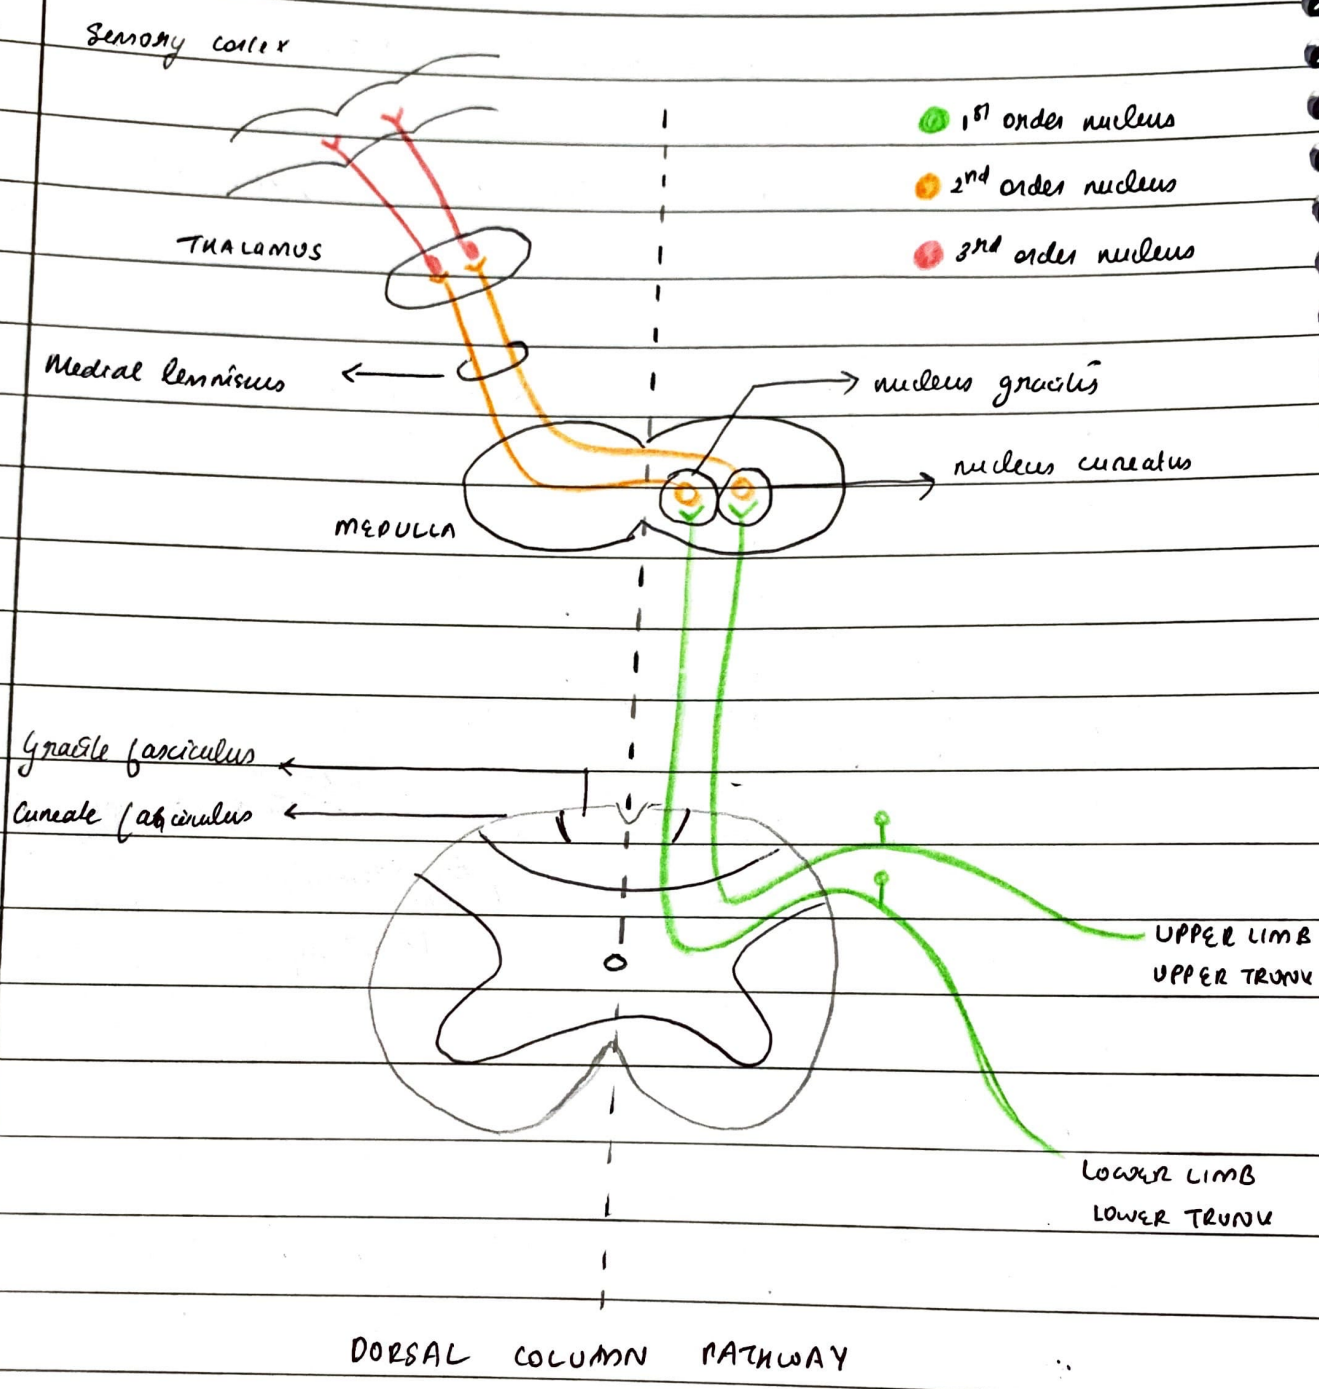 Sensory cortex
1st order nucleus
2nd order nucleus
3rd order nucleus
THALAMUS
Medial lemniscus
nucleus gracilis
nucleus cuneatus
MEDULLA
Gracile fasciculus
Cuneate fasciculus
UPPER LIMB
UPPER TRUNK
LOWER LIMB
LOWER TRUNK
DORSAL COLUMN PATHWAY